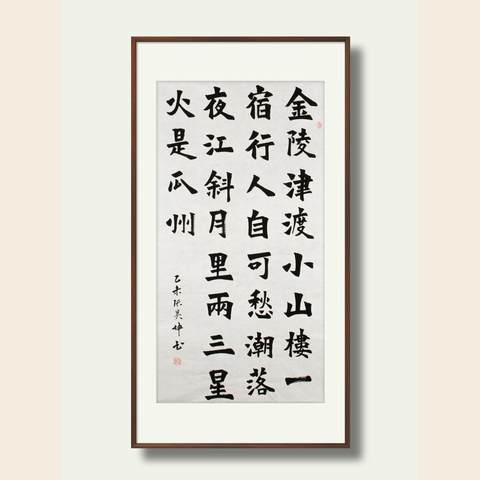 金陵津渡小山樓一
宿行人自可愁潮落
夜江斜月里兩三星
火是瓜州
乙未张英坤书